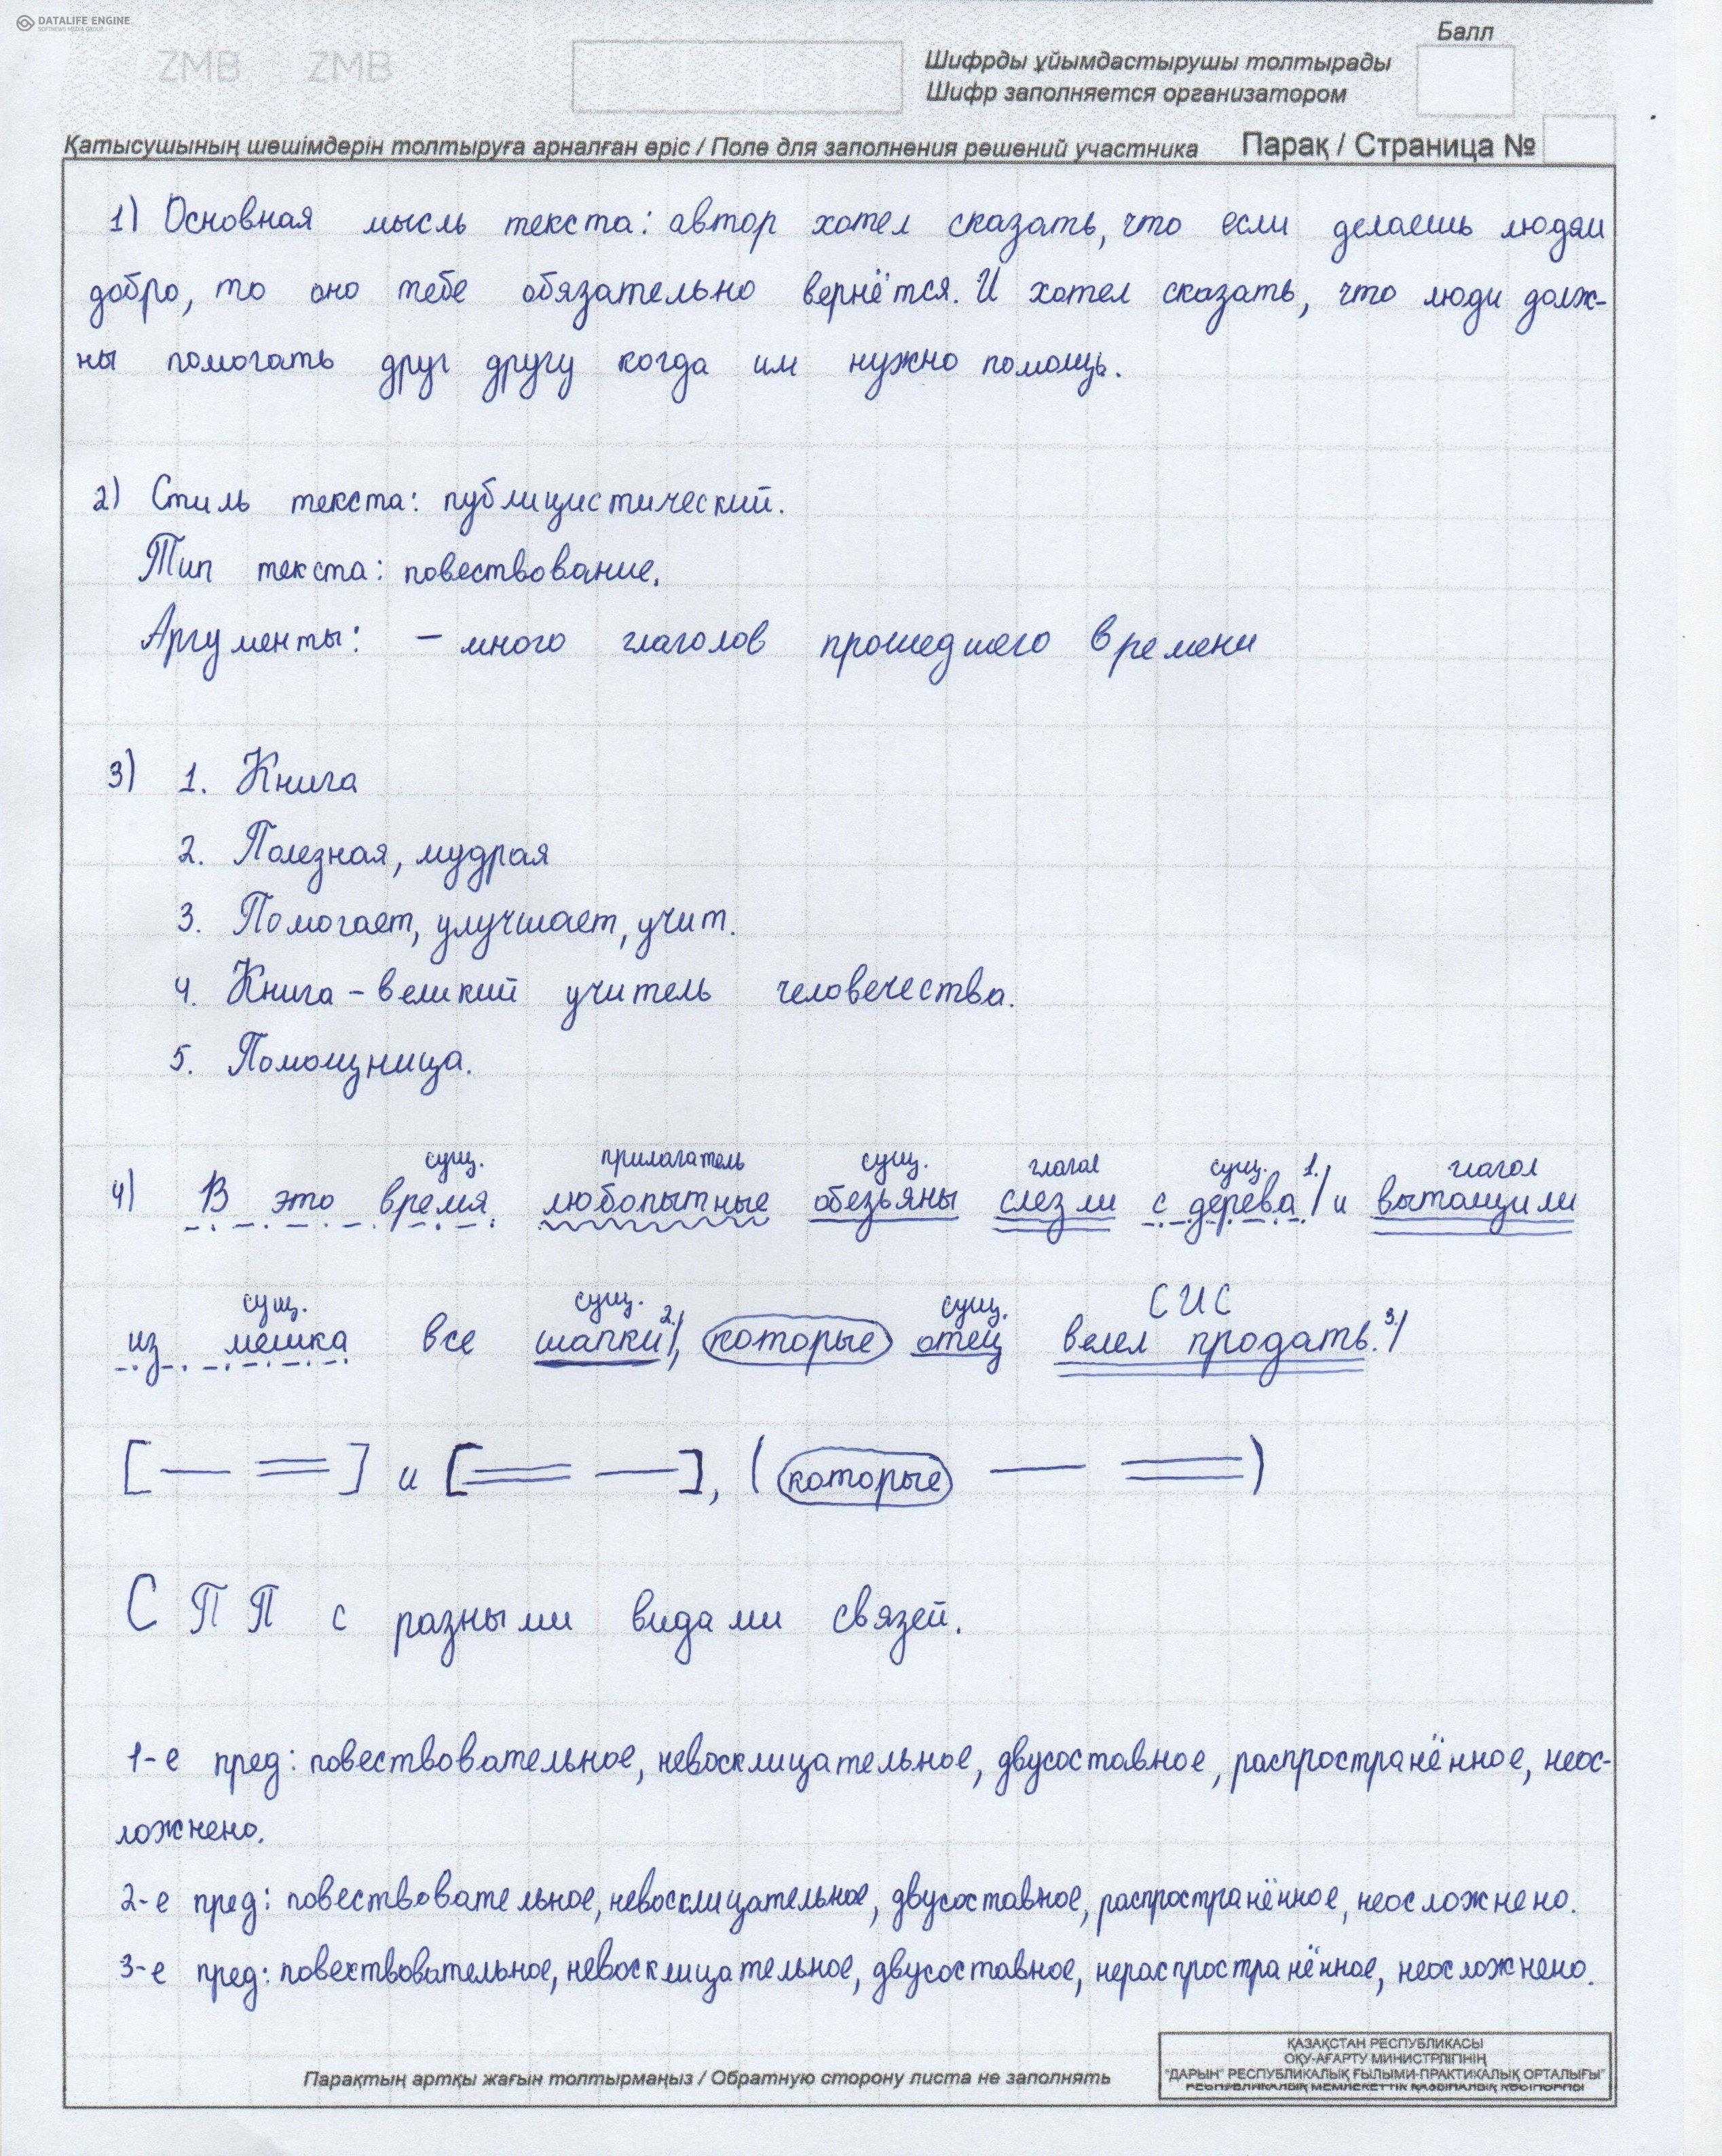 DATALIFE ENGINE
SOFTNEWS MEDIA GROUP
ZMB ZMB
Балл
Шифрды ұйымдастырушы толтырады
Шифр заполняется организатором
Қатысушының шешімдерін толтыруға арналған өріс / Поле для заполнения решений участника Парақ / Страница №
1) Основная мысль текста: автор хотел сказать, что если делаешь людям
добро, то оно тебе обязательно вернётся. И хотел сказать, что люди долж-
ны помогать друг другу когда им нужно помощь.
2) Стиль текста: публицистический.
Тип текста: повествование.
Аргументы: – много глаголов прошедшего времени
3) 1. Книга
2. Полезная, мудрая
3. Помогает, улучшает, учит.
4. Книга – великий учитель человечества.
5. Помощница.
сущ. прилагатель сущ. глагол сущ. 1. глагол
4) В это время любопытные обезьяны слезли с дерева / и вытащили
сущ. сущ. 2. сущ. СИС 3.
из мешка все шапки/, которые отец велел продать. /
[ — = ] и [ = — ], ( которые — = )
СПП с разными видами связей.
1-е пред: повествовательное, невосклицательное, двусоставное, распространённое, неос-
ложнено.
2-е пред: повествовательное, невосклицательное, двусоставное, распространённое, неосложнено.
3-е пред: повествовательное, невосклицательное, двусоставное, нераспространённое, неосложнено.
Парақтың артқы жағын толтырмаңыз / Обратную сторону листа не заполнять
ҚАЗАҚСТАН РЕСПУБЛИКАСЫ
ОҚУ-АҒАРТУ МИНИСТРЛІГІНІҢ
"ДАРЫН" РЕСПУБЛИКАЛЫҚ ҒЫЛЫМИ-ПРАКТИКАЛЫҚ ОРТАЛЫҒЫ"
РЕСПУБЛИКАЛЫҚ МЕМЛЕКЕТТІК ҚАЗЫНАЛЫҚ КӘСІПОРНЫ